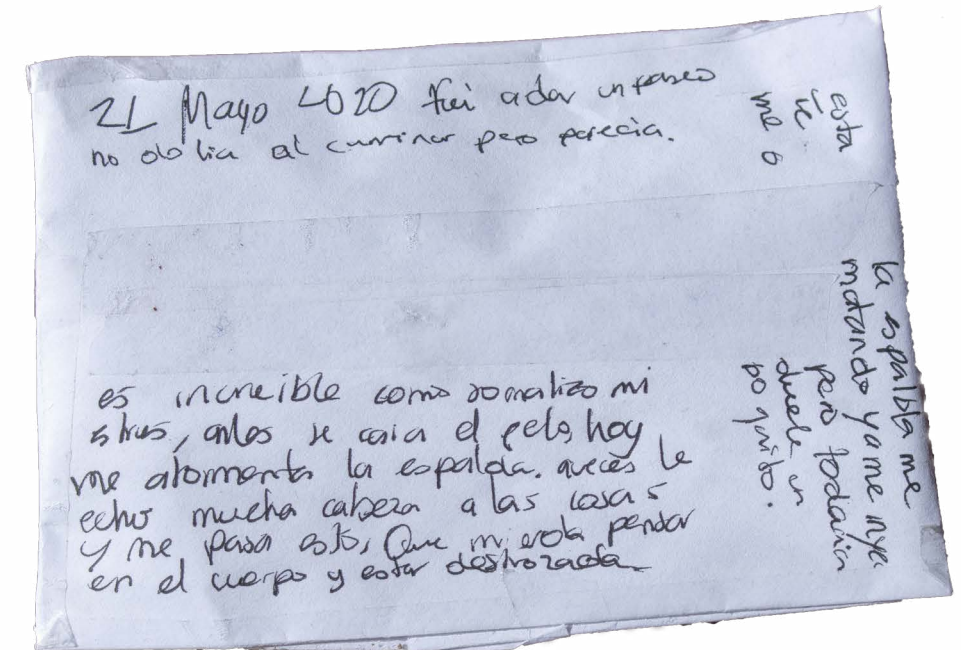 21 Mayo 2020 fui a dar un paseo
no dolia al caminar pero parecia.
esta
me
la espalda me
matando ya me inye
pero todavia
duele un
poquito.
es increible como somatizo mi
stres, antes se caia el pelo, hoy
me atormenta la espalda. aveces le
echo mucha cabeza a las cosas
y me pasa esto, Que mierda pensar
en el cuerpo y estar destrozada